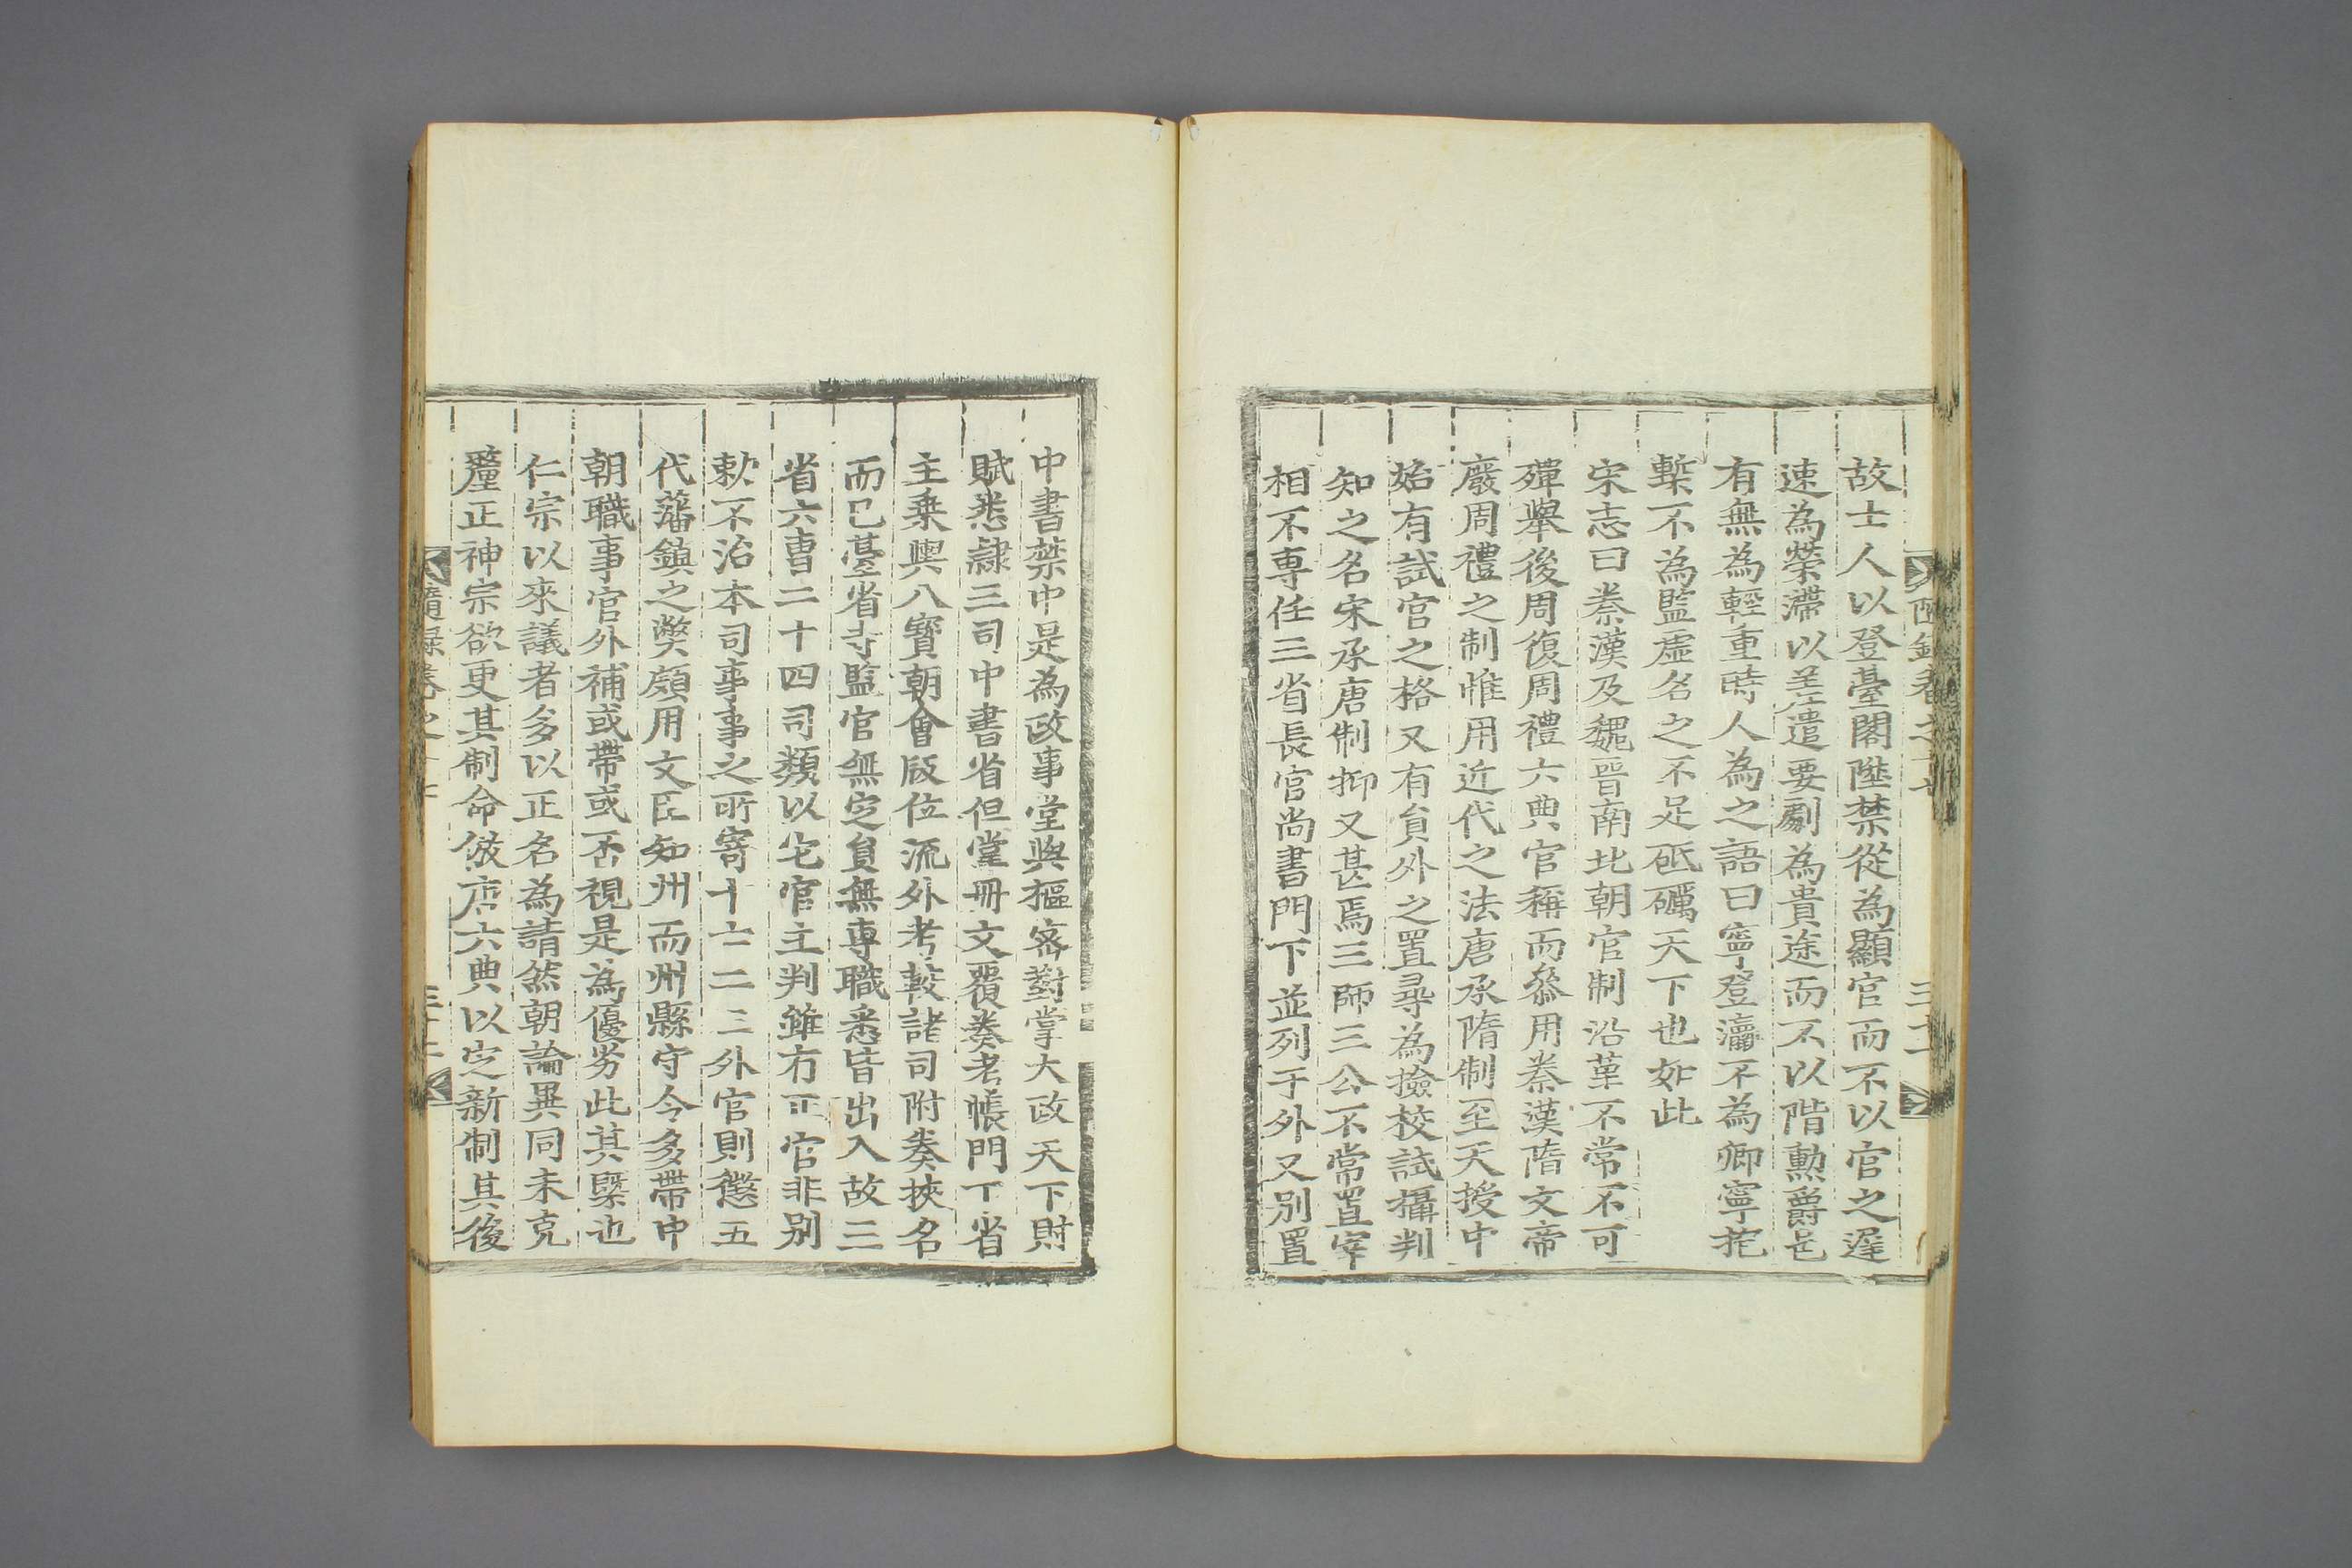 故士人以登臺閣陞禁從為顯官而不以官之遲
速為榮滯以差遣要劇為貴途而不以階勳爵邑
有無為輕重時人為之語曰寧登瀛不為卿寧抱
槧不為監虛名之不足砥礪天下也如此
宋志曰秦漢及魏晉南北朝官制沿革不常不可
殫舉後周復周禮六典官稱而叅用秦漢隋文帝
廢周禮之制惟用近代之法唐承隋制至天授中
始有試官之格又有貟外之置尋為撿校試攝判
知之名宋承唐制抑又甚焉三師三公不常置宰
相不専任三省長官尚書門下並列于外又別置
中書禁中是為政事堂與樞密對掌大政天下財
賦悉隷三司中書省但掌冊文覆奏考帳門下省
主乗輿八寳朝會版位流外考較諸司附奏挾名
而已臺省寺監官無定貟無専職悉皆出入故三
省六曹二十四司類以它官主判雖有正官非別
敕不治本司事事之所寄十亡二三外官則懲五
代藩鎮之獘頗用文臣知州而州縣守令多帶中
朝職事官外補或帶或否視是為優劣此其槩也
仁宗以來議者多以正名為請然朝論異同未克
釐正神宗欲更其制命倣唐六典以定新制其後
隨録卷之十七